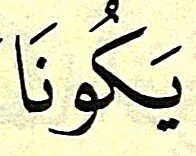 يَكُونَا